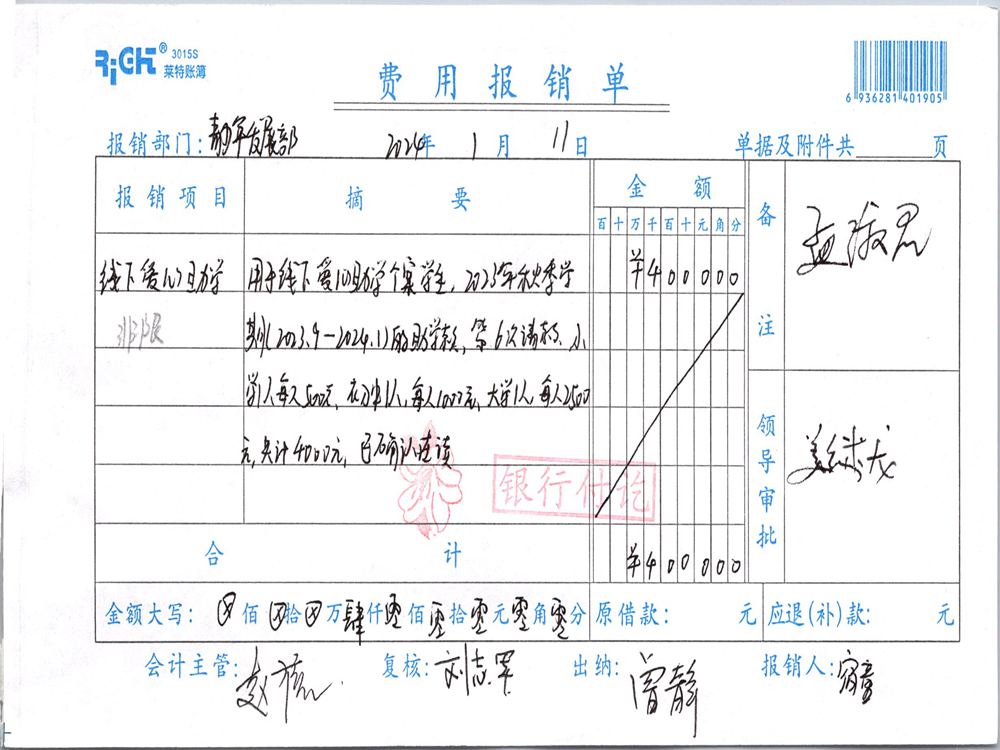 RiGHT® 3015S
莱特账簿
费用报销单
6 936281 401905
报销部门: 青年发展部 2024年 1月 11日 单据及附件共 页
报销项目 摘要 金额 备注
百十万千百十元角分
线下爱心助学 用于线下爱心助学个案学生,2023年秋季学 ¥400000
非限 期(2023.9-2024.1)的助学款,第6次请款,小
学1人每人500元,初中1人,每人1000元,大学1人每人2500
元,共计4000元,已确认连读
银行付讫
领导审批
合计 ¥400000
金额大写: ⊗佰⊗拾⊗万肆仟零佰零拾零元零角零分 原借款: 元 应退(补)款: 元
会计主管: 复核: 刘志军 出纳: 曾静 报销人: